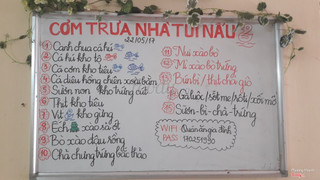 CƠM TRƯA NHÀ TÚI NẤU
22/05/17
① Canh chua cá hú
② Cá hú kho tộ
③ Cá cơm kho tiêu
④ Cá diêu hồng chiên xoài bằm
⑤ Sườn non kho trứng cút
⑥ Thịt kho tiêu
⑦ Vịt kho gừng
⑧ Ếch xào sả ớt
⑨ Bò xào đậu sống
⑩ Chả chưng trứng bắc thảo
⑪ Nui xào bò
⑫ Mì xào bò trứng
⑬ Bún bì / thịt chả giò
⑭ Gà luộc / sốt me / rôti / xối mỡ
⑮ Sườn - bì - chả - trứng
WIFI Quán ăn gia đình
PASS 170251990